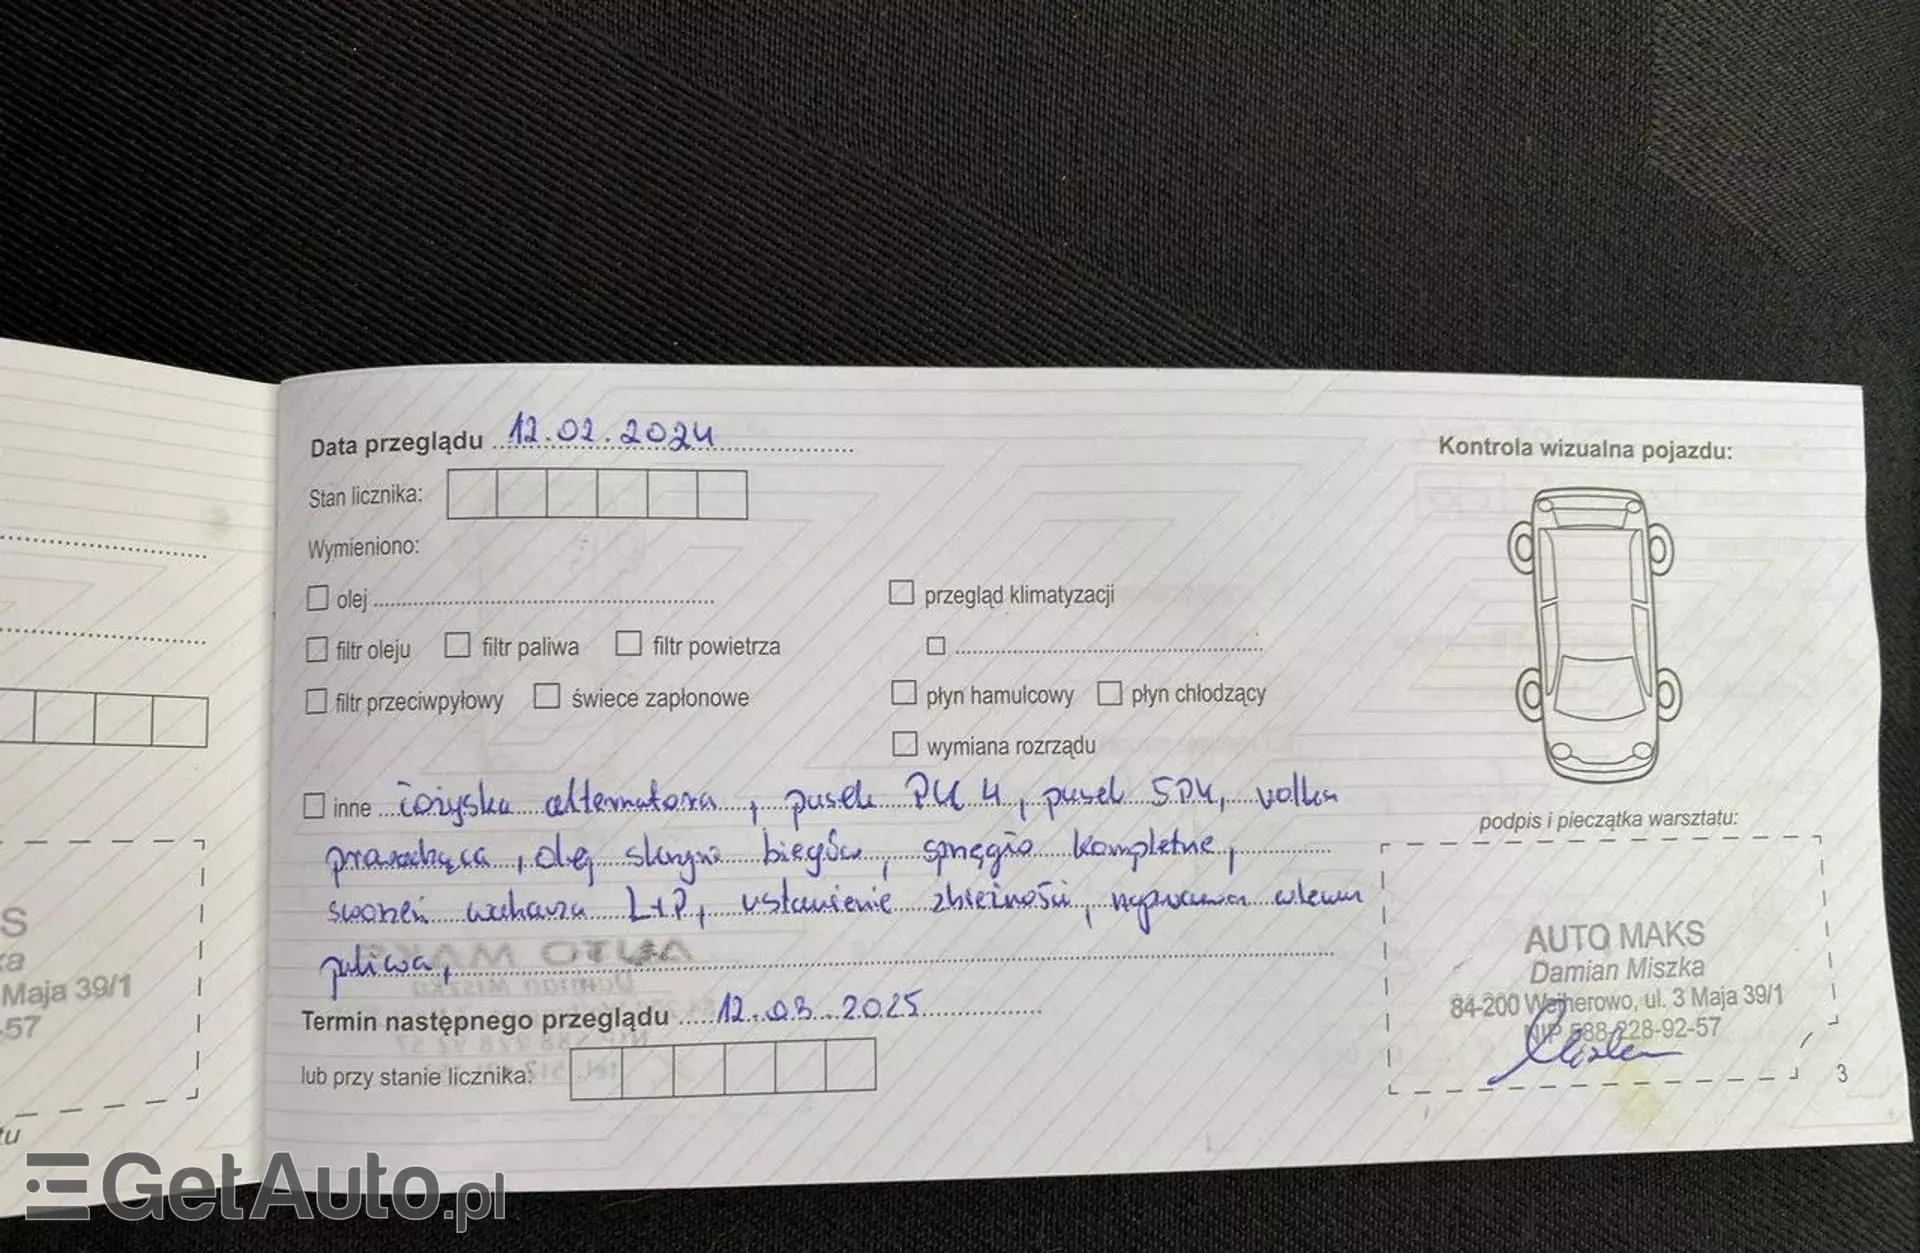 Data przeglądu 12.02.2024
Stan licznika:
Wymieniono:
olej
filtr oleju filtr paliwa filtr powietrza
filtr przeciwpyłowy świece zapłonowe
przegląd klimatyzacji
płyn hamulcowy płyn chłodzący
wymiana rozrządu
inne łożyska alternatora, pasek PK 4, pasek 5PK, rolka
prowadząca, olej skrzyni biegów, sprzęgło kompletne,
sworzeń wahacza L+P, ustawienie zbieżności, naprawa wlewu
paliwa,
Termin następnego przeglądu 12.03.2025
lub przy stanie licznika:
Kontrola wizualna pojazdu:
podpis i pieczątka warsztatu:
AUTO MAKS
Damian Miszka
84-200 Wejherowo, ul. 3 Maja 39/1
NIP 588-228-92-57
3
S
ka
Maja 39/1
-57
tu
GetAuto.pl